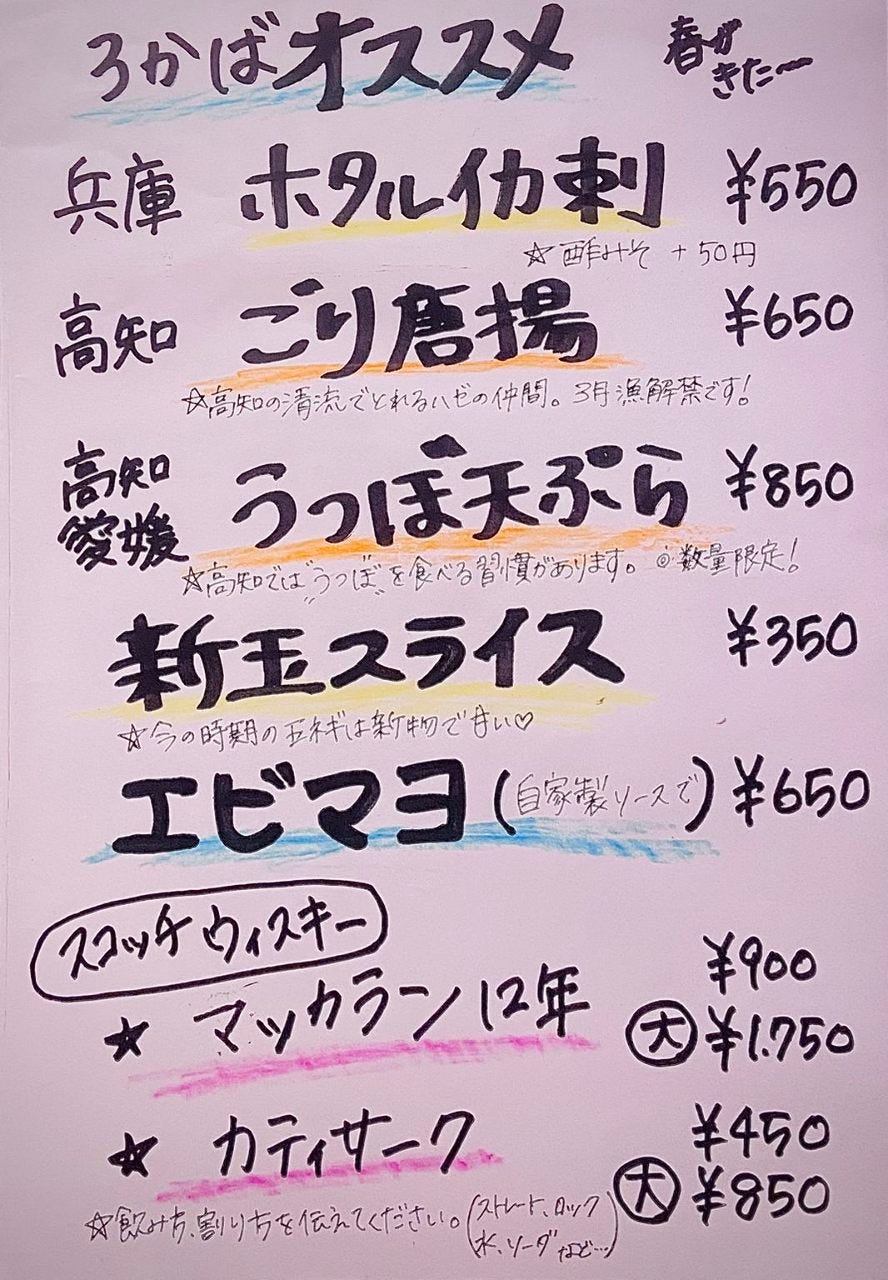 ろかばオススメ 春がきたー
兵庫 ホタルイカ刺 ¥550
☆酢みそ +50円
高知 ごり唐揚 ¥650
☆高知の清流でとれるハゼの仲間。3月漁解禁です!
高知 愛媛 うつぼ天ぷら ¥850
☆高知では"うつぼ"を食べる習慣があります。◎数量限定!
新玉スライス ¥350
☆今の時期の玉ネギは新物で甘い♡
エビマヨ(自家製ソースで) ¥650
スコッチウィスキー
★ マッカラン12年 ¥900
大 ¥1.750
★ カティサーク ¥450
大 ¥850
☆飲み方、割り方を伝えてください。(ストレート、ロック
水、ソーダなど…)